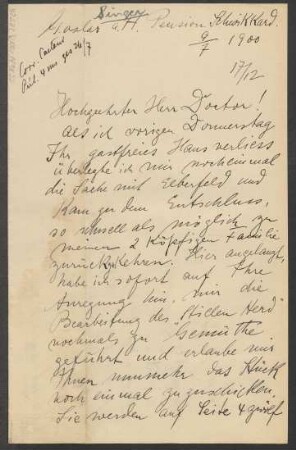 Singer
Goslar a/H. Pension
9/7 1900
17/12
Hochgeehrter Herr Doctor!
Als ich vorigen Donnerstag
Ihr gastfreies Haus verliess
überlegte ich mir nocheinmal
die Sache mit Elberfeld und
kam zu dem Entschluss,
so schnell als möglich zu
meiner 2 köpfigen Familie
zurückzukehren. Hier angelangt,
habe ich sofort auf Ihre
Anregung hin, mir die
Bearbeitung des "stillen Herd"
nochmals zu Gemüthe
geführt und erlaube mir
Ihnen nunmehr das Stück
noch einmal zuzuschicken.
Sie werden auf Seite 4 zwölf